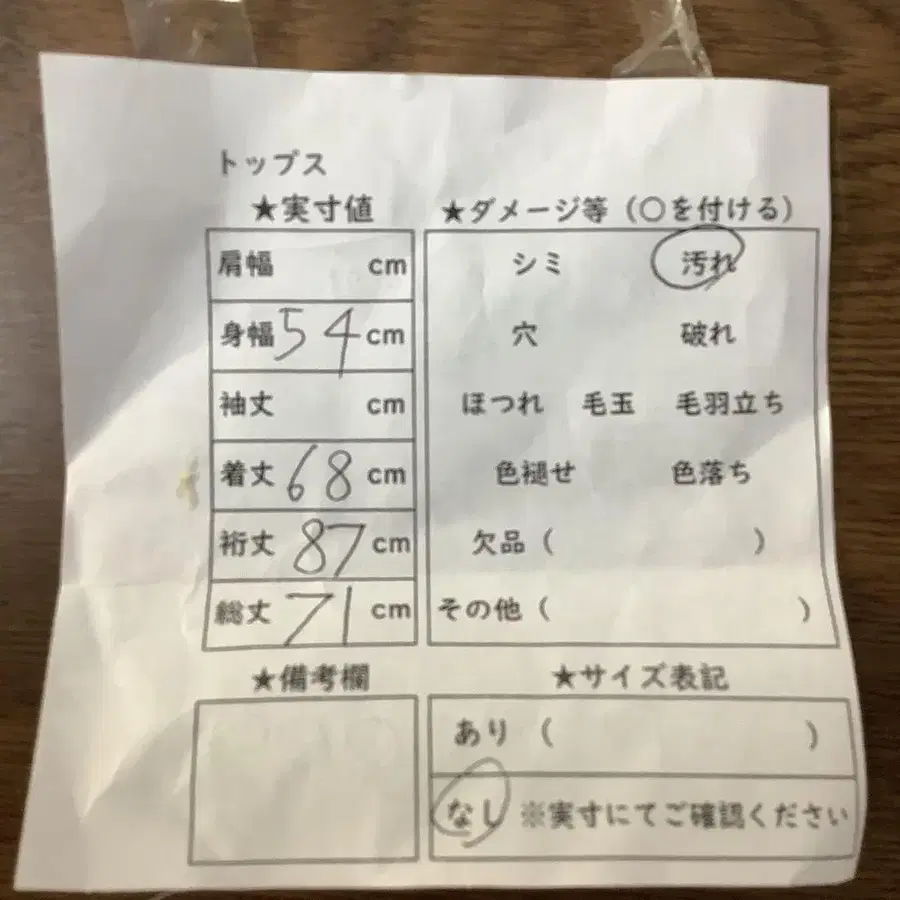 トップス
★実寸値
肩幅 cm
身幅 54 cm
袖丈 cm
着丈 68 cm
裄丈 87 cm
総丈 71 cm
★ダメージ等（○を付ける）
シミ 汚れ
穴 破れ
ほつれ 毛玉 毛羽立ち
色褪せ 色落ち
欠品（ ）
その他（ ）
★備考欄
★サイズ表記
あり（ ）
なし ※実寸にてご確認ください